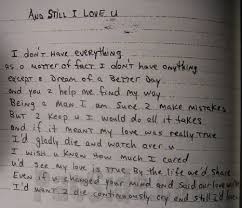 And Still I Love U
I don't have everything
as a matter of fact I don't have anything
except a dream of a better day
and you 2 help me find my way
Being a man I am sure 2 make mistakes
But 2 keep u I would do all it takes
and if it meant my love was really true
I'd gladly die and watch over u
I wish u knew how much I cared
u'd see my love is true By the life we'd share
Even if u changed your mind and said our love
I'd want 2 die continuously cry and still I'd